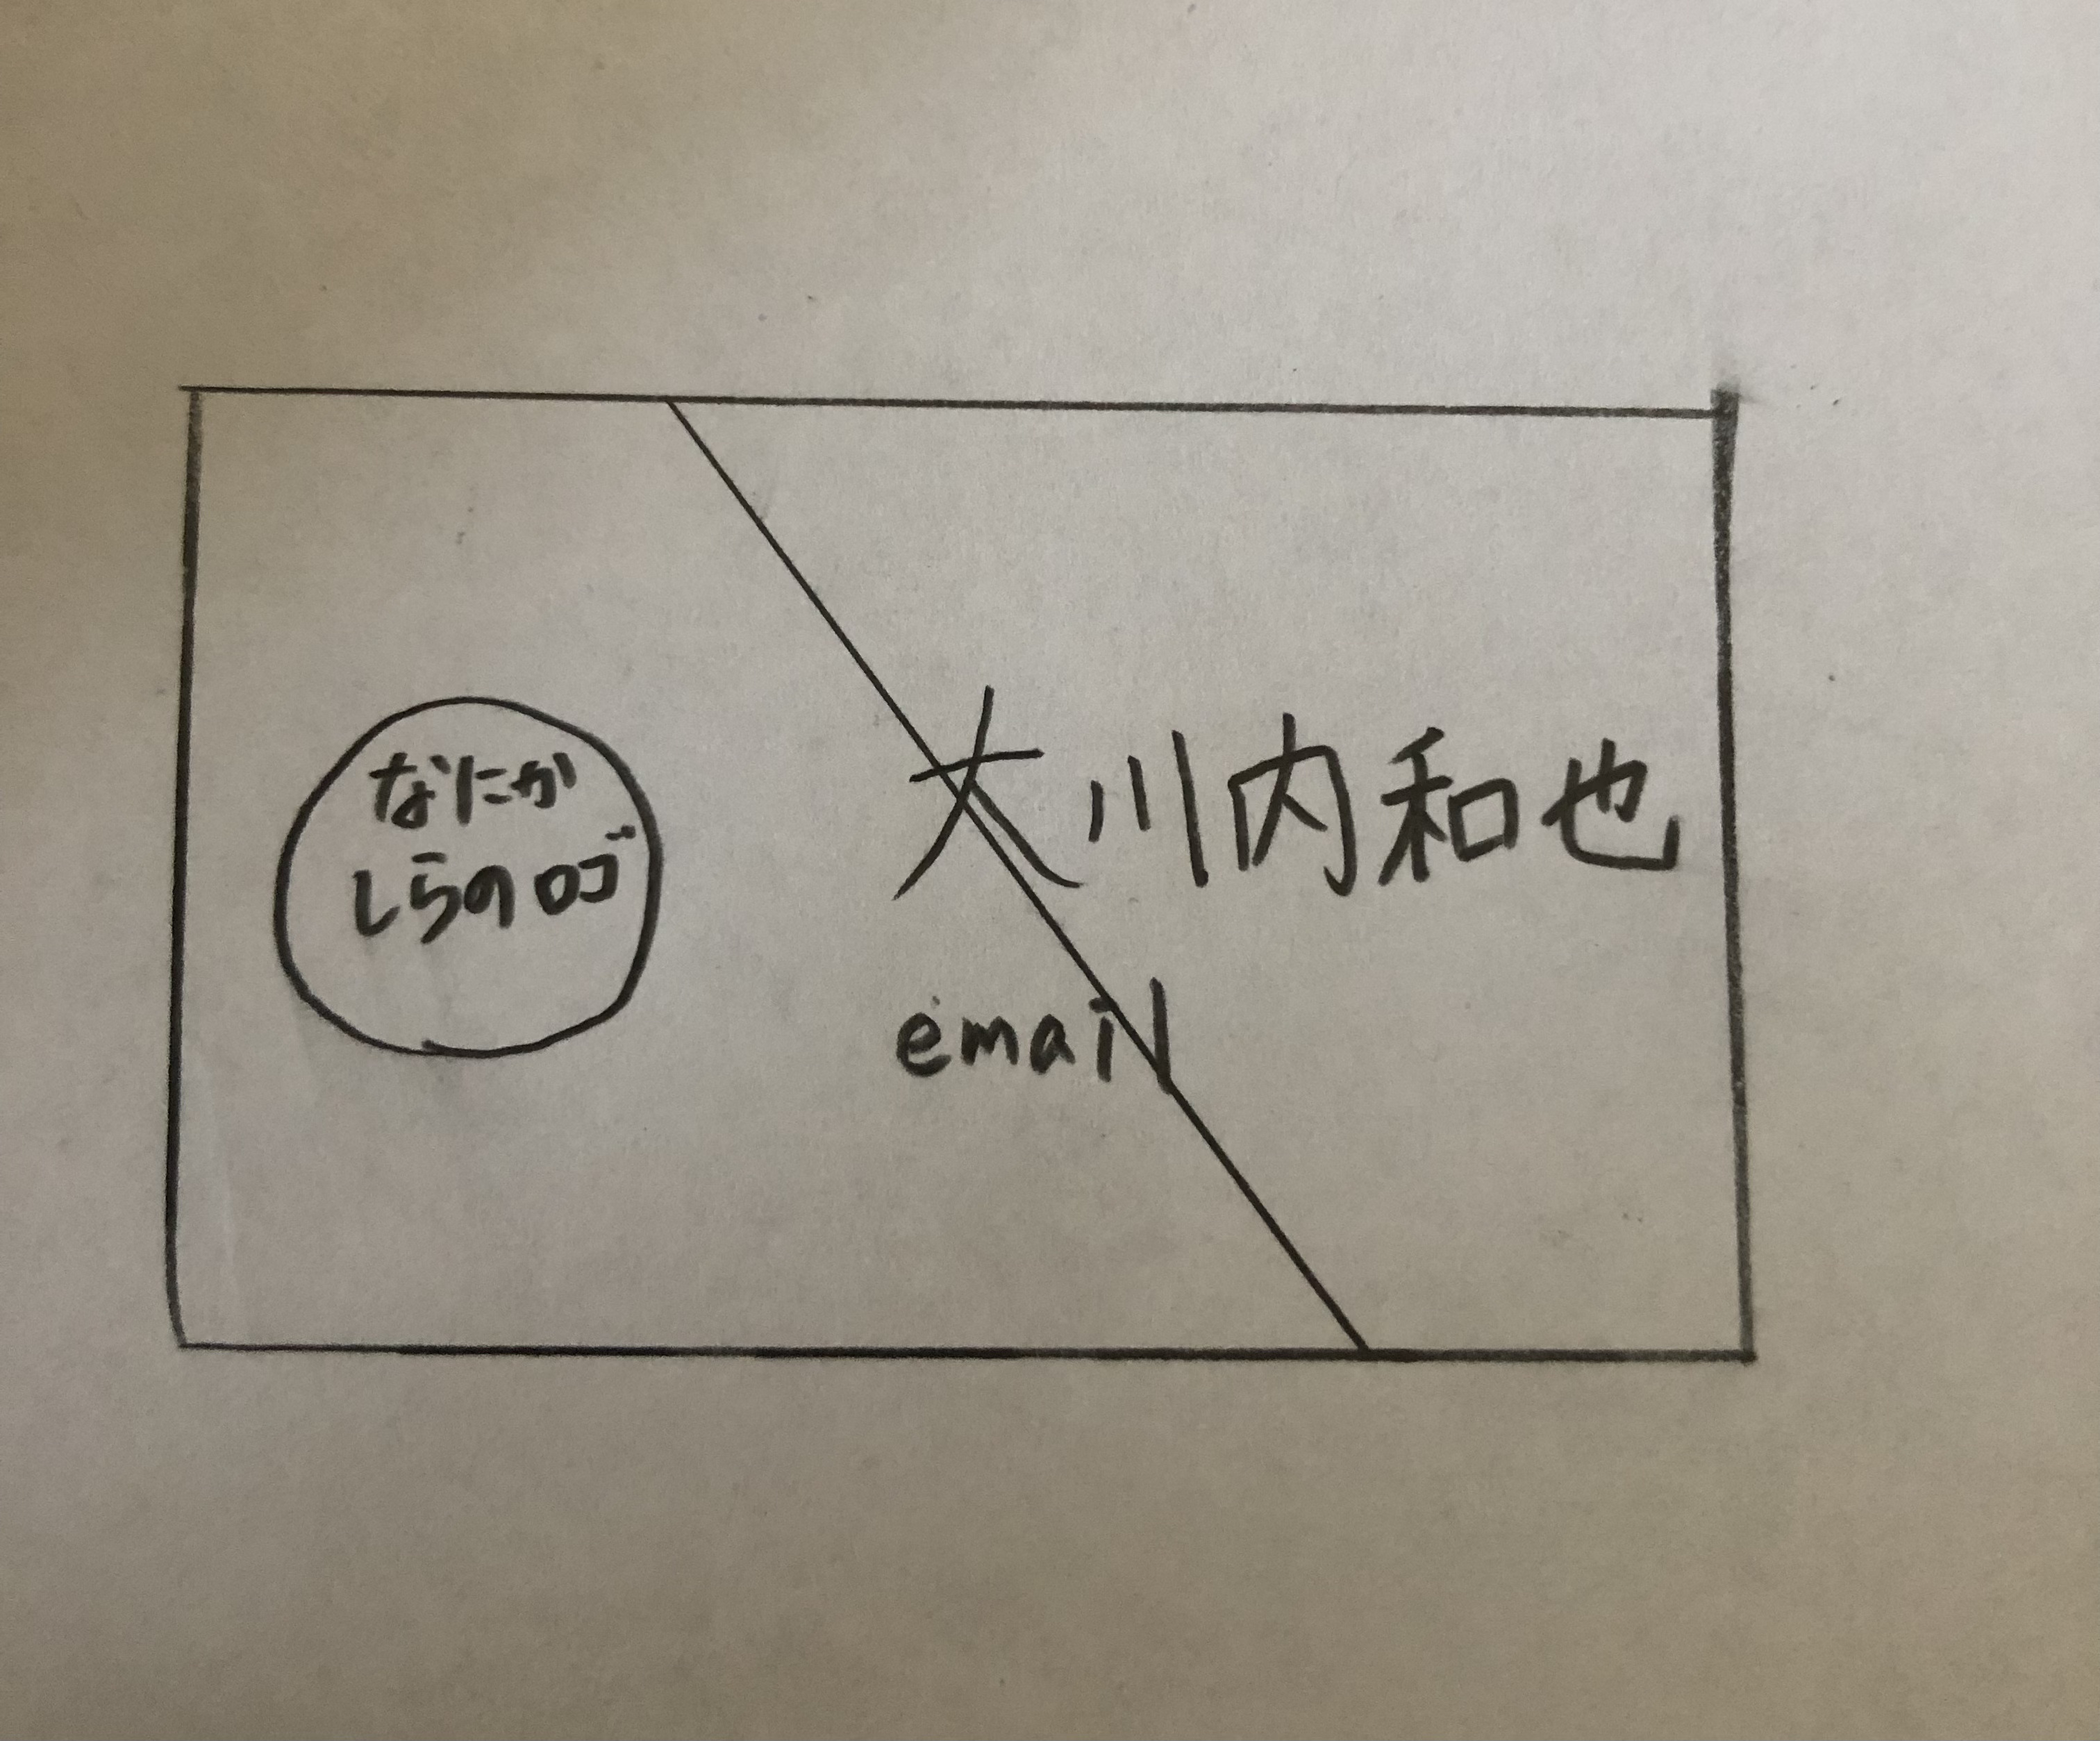 なにか
しらのロゴ
大川内和也
email